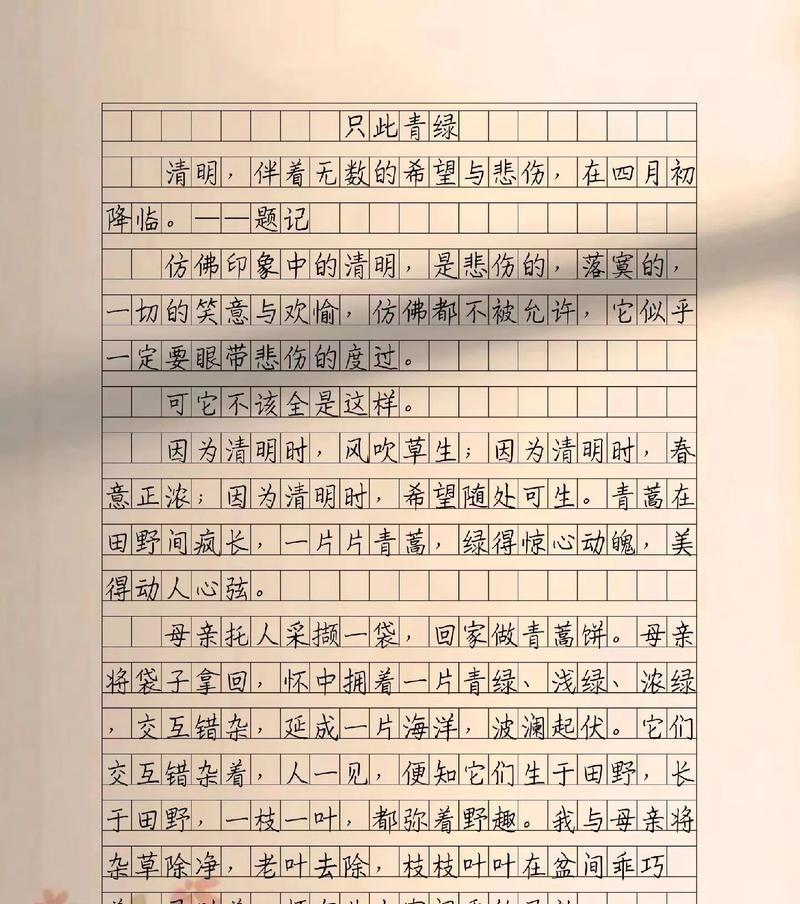 只此青绿
清明，伴着无数的希望与悲伤，在四月初
降临。——题记
仿佛印象中的清明，是悲伤的，落寞的，
一切的笑意与欢愉，仿佛都不被允许，它似乎
一定要眼带悲伤的度过。
可它不该全是这样。
因为清明时，风吹草生；因为清明时，春
意正浓；因为清明时，希望随处可生。青蒿在
田野间疯长，一片片青蒿，绿得惊心动魄，美
得动人心弦。
母亲托人采撷一袋，回家做青蒿饼。母亲
将袋子拿回，怀中拥着一片青绿、浅绿、浓绿
，交互错杂，延成一片海洋，波澜起伏。它们
交互错杂着，人一见，便知它们生于田野，长
于田野，一枝一叶，都弥着野趣。我与母亲将
杂草除净，老叶去除，枝枝叶叶在盆间乖巧